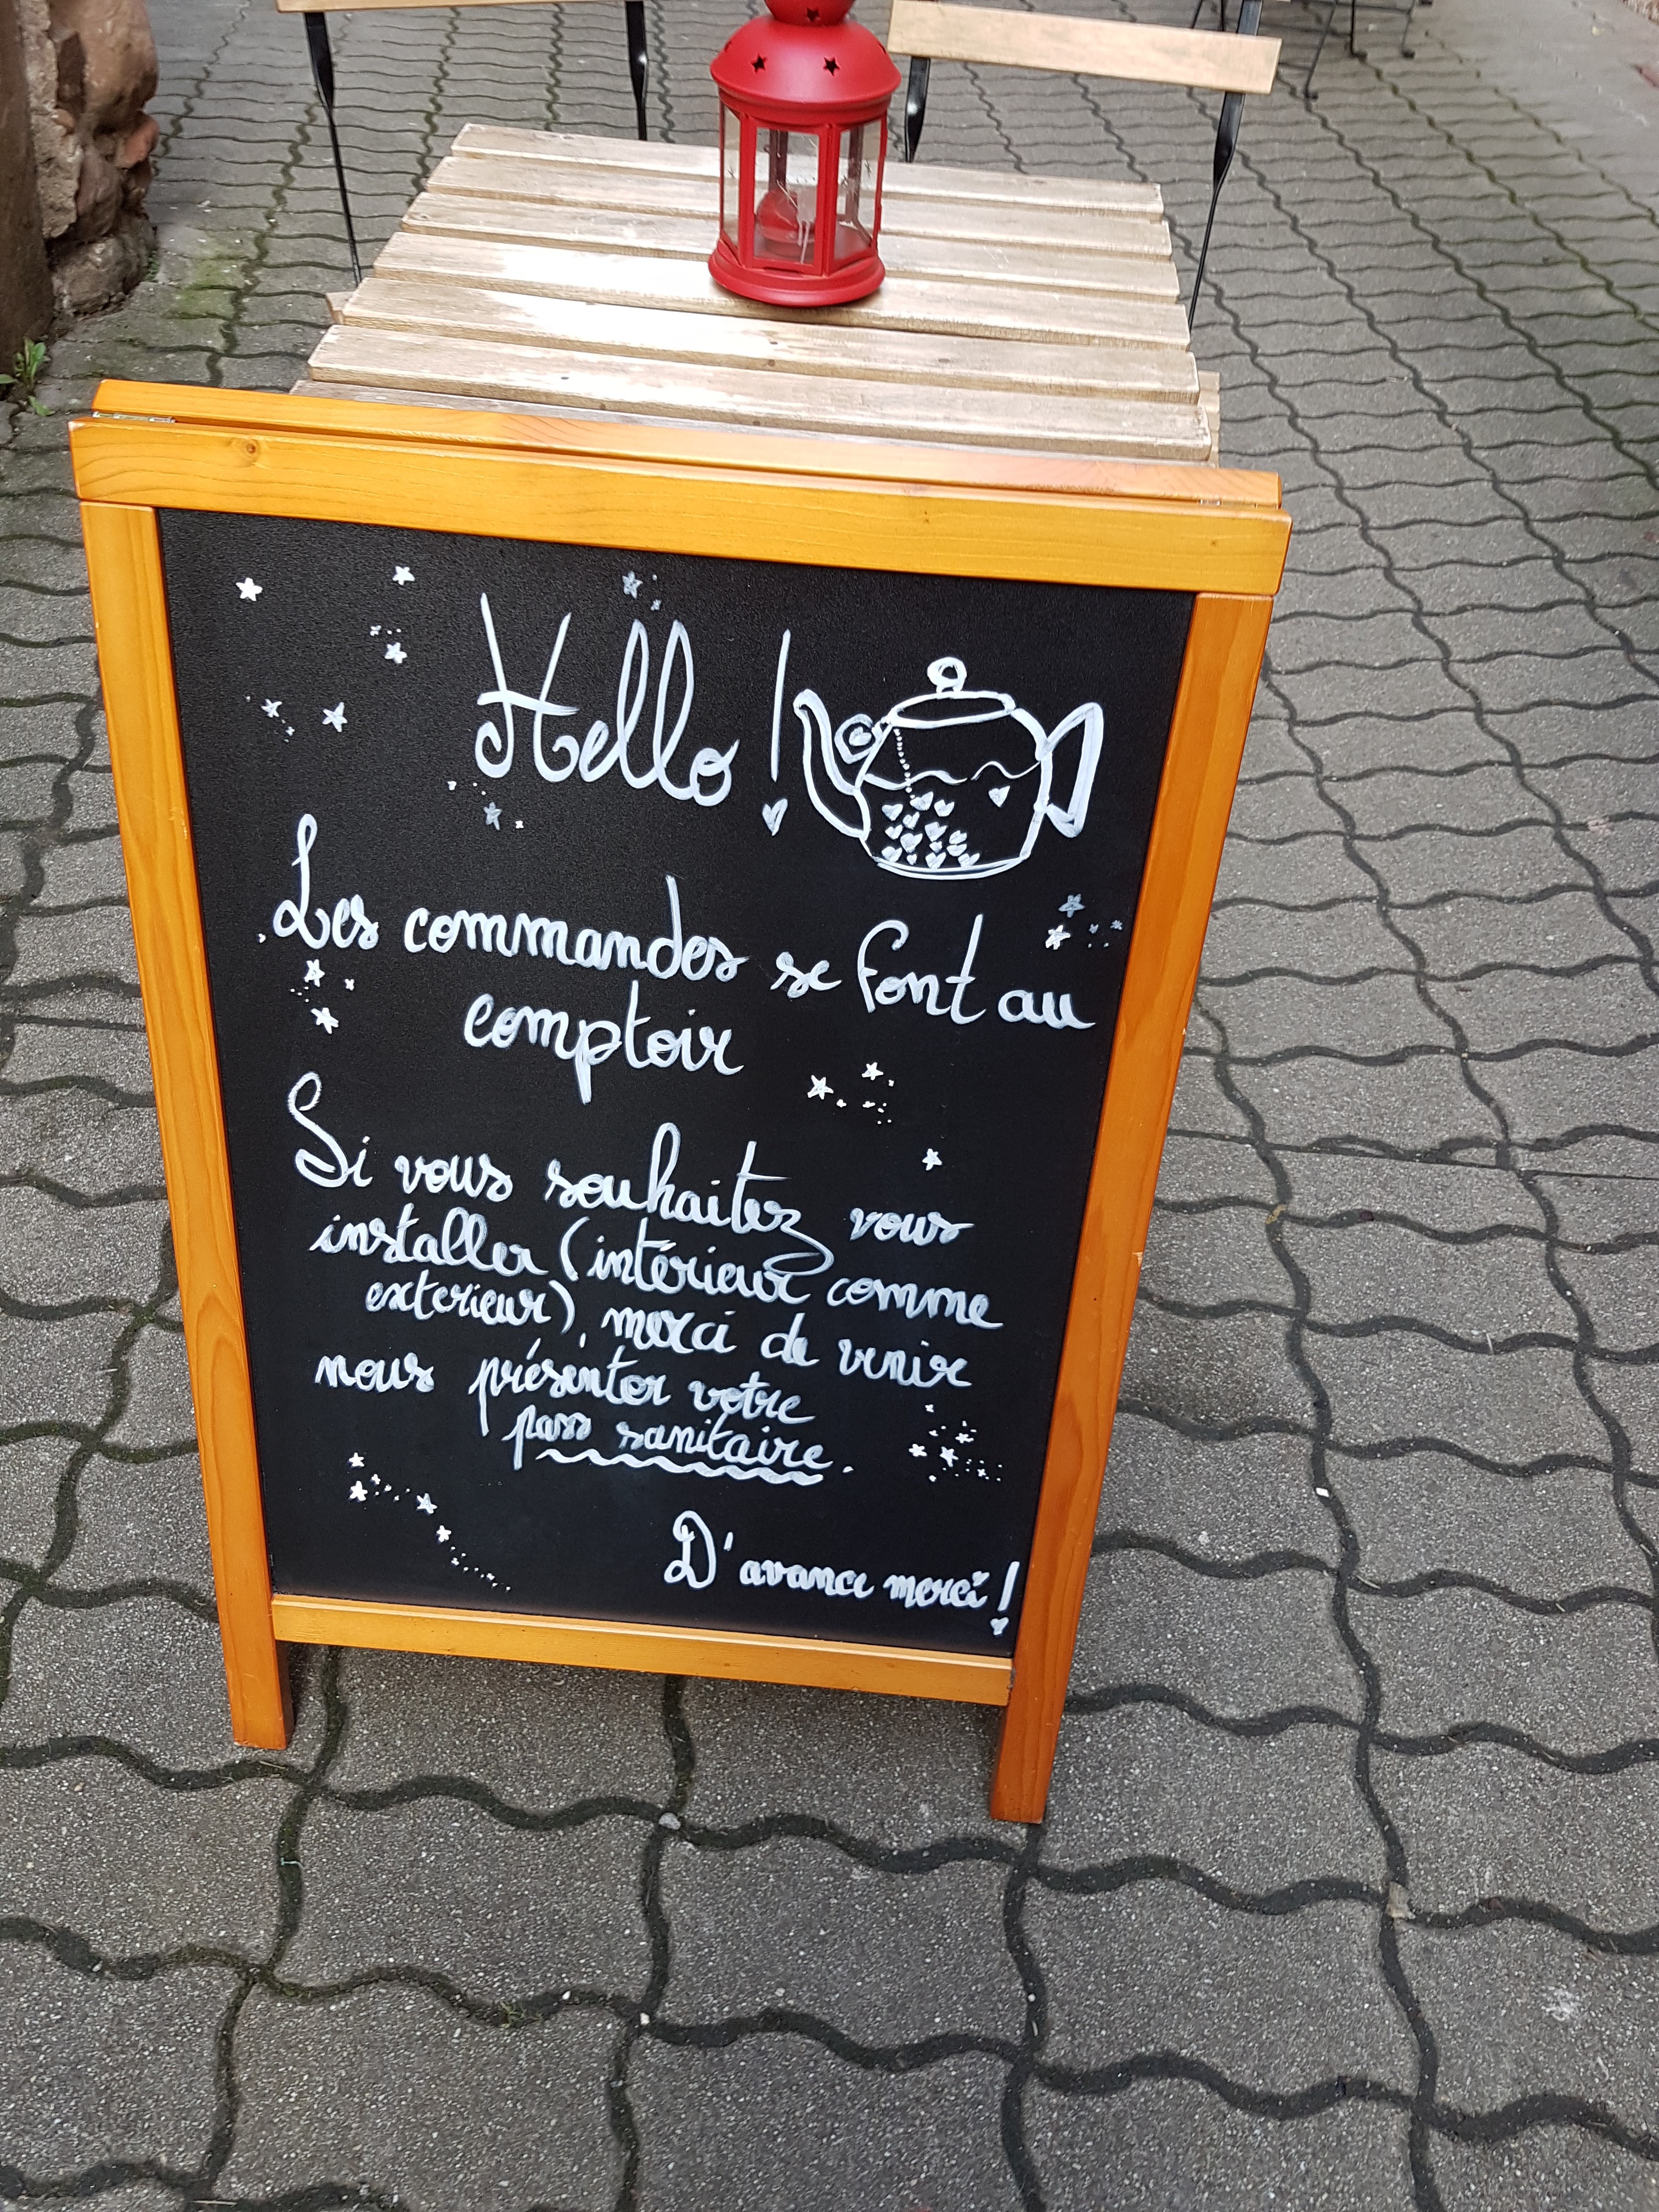 Hello !
Les commandes se font au
comptoir
Si vous souhaitez vous
installer (intérieur comme
exterieur), merci de venir
nous présenter votre
pass sanitaire.
D'avance merci !